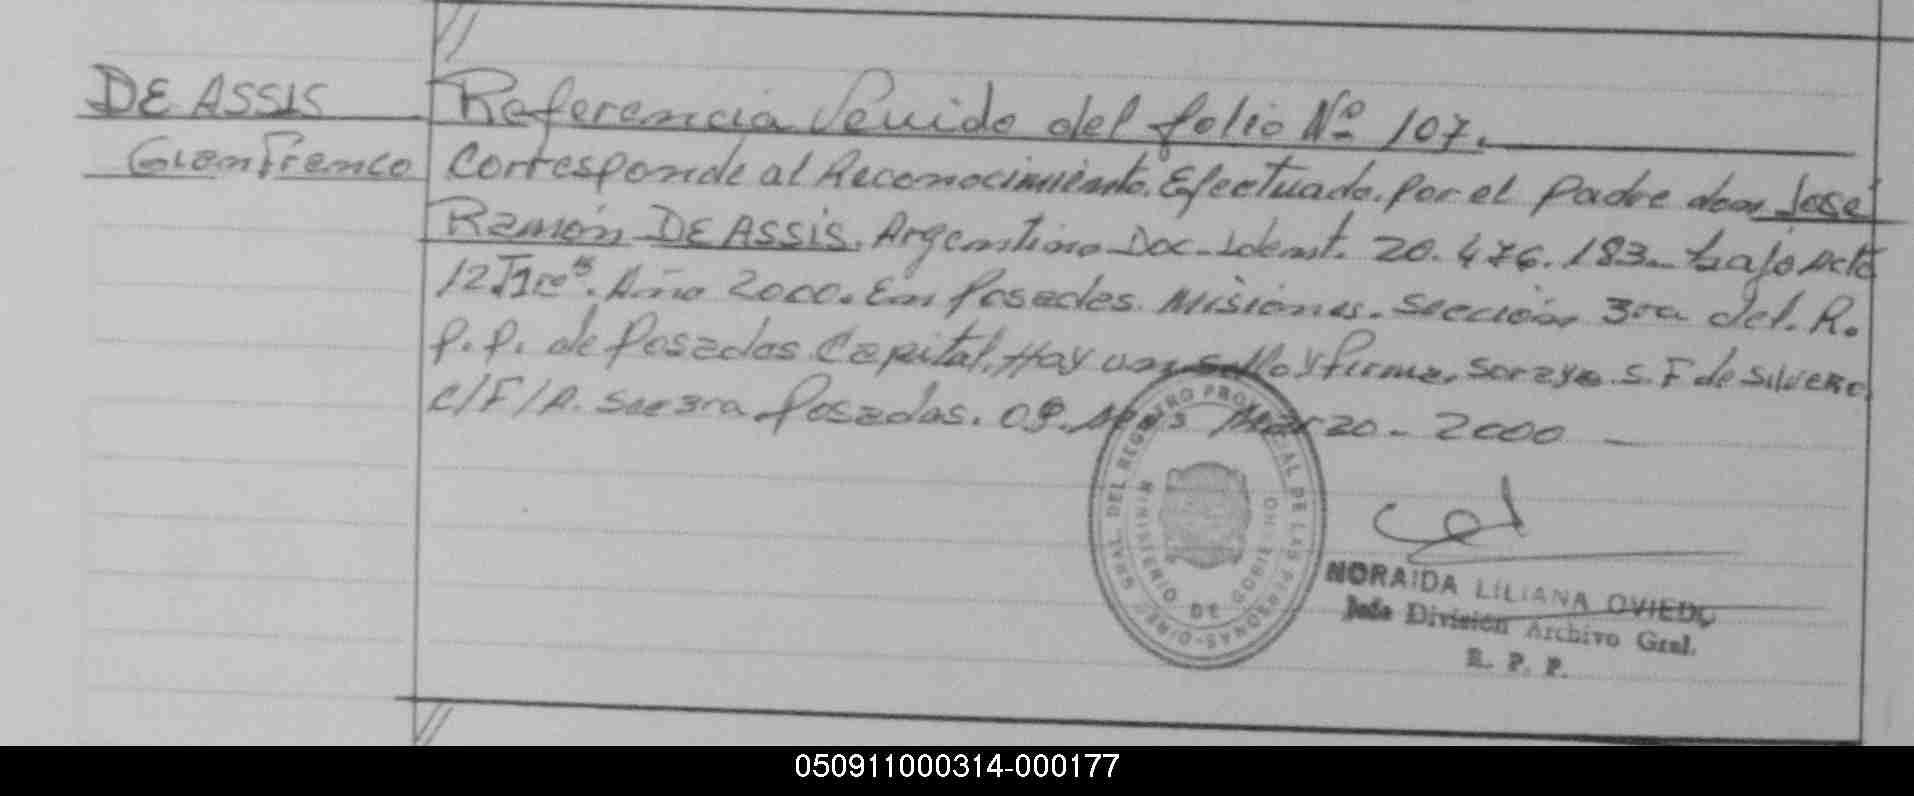 DE ASSIS
Gianfranco
Referencia Venido del folio Nº 107.
Corresponde al Reconocimiento. Efectuado. por el padre don José
Ramón DE ASSIS. Argentino Doc. Ident. 20.476.183. bajo Acta
12 Año 2000. En Posadas. Misiones. Sección 3ra del. R.
P.P. de Posadas Capital. Hay un sello y firma. Soraya. S. F de Silvero.
c/F/A. Sec 3ra Posadas. 09. Marzo - 2000 -
DIREC. GRAL. DEL REGISTRO PROVINCIAL DE LAS PERSONAS
MINISTERIO DE GOBIERNO
NORAIDA LILIANA OVIEDO
Jefe División Archivo Gral.
R. P. P.
050911000314-000177